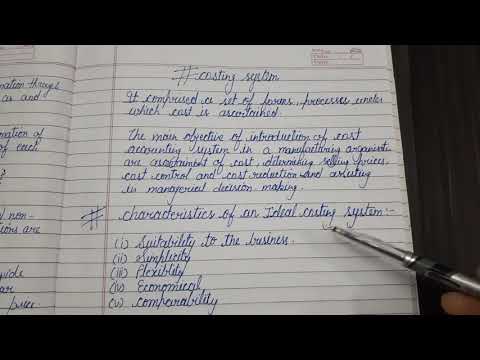 # costing system
It comprised a set of forms, processes under
which cost is ascertained.
The main objective of introduction of cost
accounting system in a manufacturing organisati-
are ascertainment of cost, determining selling prices,
cost control and cost reduction and assisting
in managerial decision making.
# characteristics of an Ideal costing system:-
(i) Suitability to the business.
(ii) Simplicity
(iii) Flexiblity
(iv) Economical
(v) comparability
mation through
as and
mation of
of each
?
non-
ions are
uide
ar
price